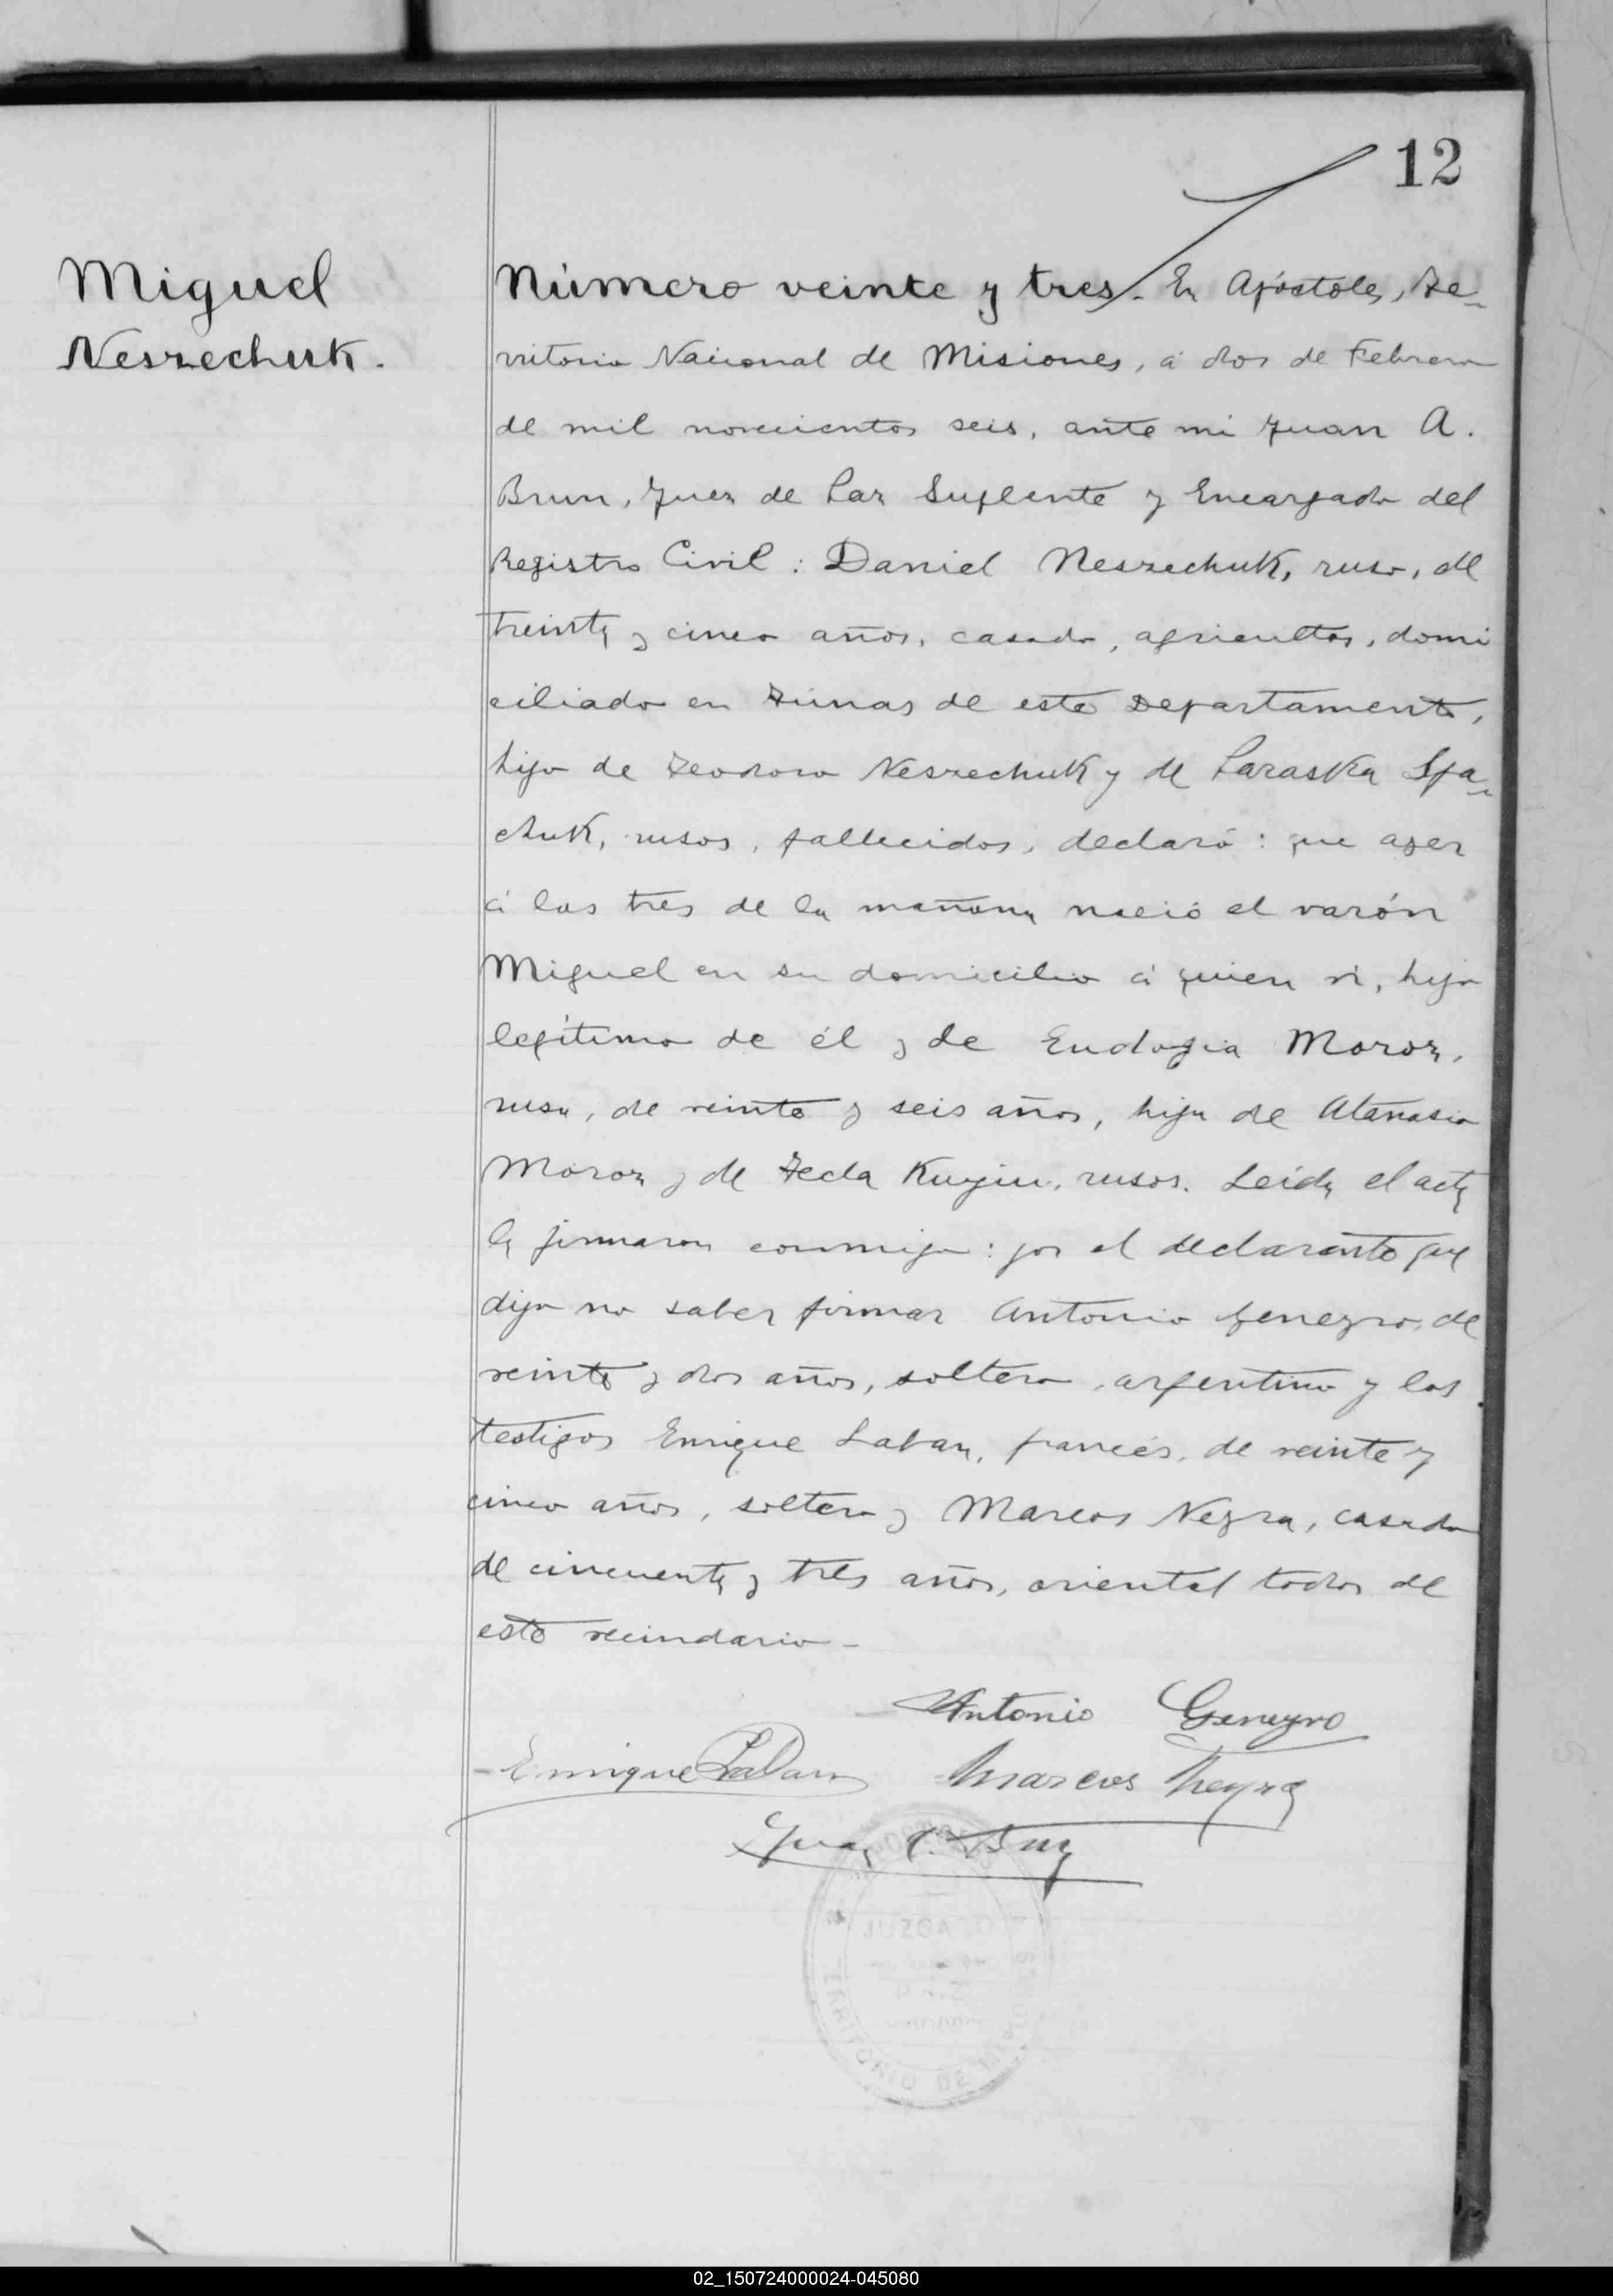 12
Miguel
Neszechuk.
Número veinte y tres. En Apóstoles, Te-
rritorio Nacional de Misiones, á dos de Febrero
de mil novecientos seis, ante mi Juan A.
Brun, Juez de Paz Suplente y Encargado del
Registro Civil: Daniel Neszechuk, ruso, de
treinta y cinco años, casado, agricultor, domi
ciliado en Tunas de este Departamento,
hijo de Teodoro Neszechuk y de Paraska Spa-
chuk, rusos, fallecidos, declaró: que ayer
á las tres de la mañana nació el varón
Miguel en su domicilio á quien ví, hijo
legítimo de él y de Eudogia Moroz,
rusa, de veinte y seis años, hija de Atanasio
Moroz y de Tecla, rusos. Leida el acta
la firmaron conmigo: por el declarante que
dijo no saber firmar Antonio Geneyro, de
veinte y dos años, soltero, argentino y los
testigos Enrique Laban, francés, de veinte y
cinco años, soltero y Marcos Neyra, casado
de cincuenta y tres años, oriental todos de
este vecindario-
Antonio Geneyro
Enrique Laban Marcos Neyra
Juan A. Brun
JUZGADO
TERRITORIO DE MISIONES
02_150724000024-045080